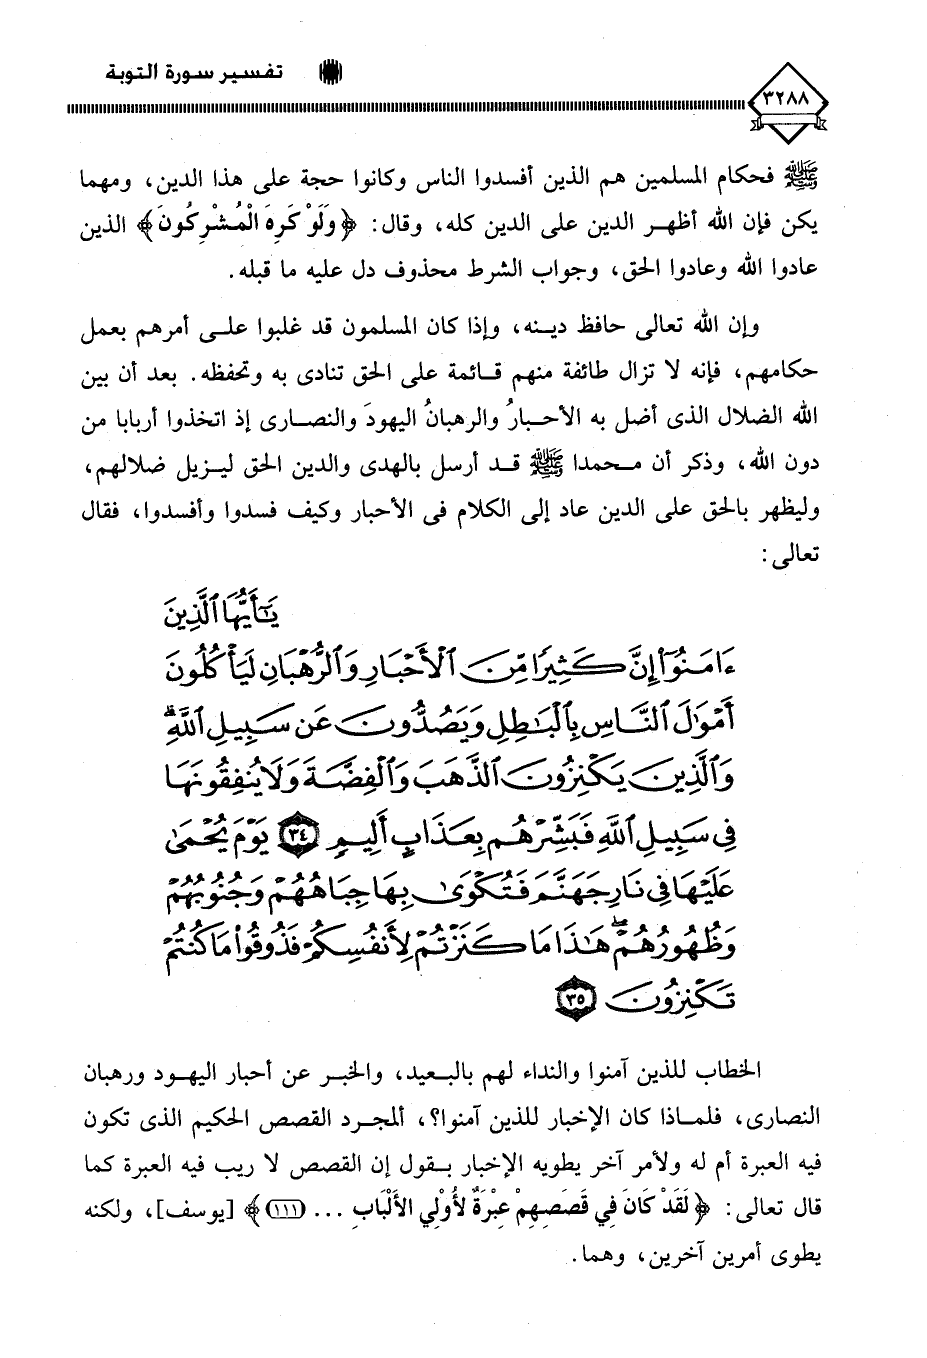 ٣٢٨٨
تفسير سورة التوبة
ﷺ فحكام المسلمين هم الذين أفسدوا الناس وكانوا حجة على هذا الدين، ومهما
يكن فإن الله أظهر الدين على الدين كله، وقال: ﴿وَلَوْ كَرِهَ الْمُشْرِكُونَ﴾ الذين
عادوا الله وعادوا الحق، وجواب الشرط محذوف دل عليه ما قبله.
وإن الله تعالى حافظ دينه، وإذا كان المسلمون قد غلبوا على أمرهم بعمل
حكامهم، فإنه لا تزال طائفة منهم قائمة على الحق تنادى به وتحفظه. بعد أن بين
الله الضلال الذى أضل به الأحبارُ والرهبانُ اليهودَ والنصارى إذ اتخذوا أربابا من
دون الله، وذكر أن محمدا ﷺ قد أرسل بالهدى والدين الحق ليزيل ضلالهم،
وليظهر بالحق على الدين عاد إلى الكلام فى الأحبار وكيف فسدوا وأفسدوا، فقال
تعالى:
يَٰٓأَيُّهَا ٱلَّذِينَ
ءَامَنُوٓا۟ إِنَّ كَثِيرًا مِّنَ ٱلْأَحْبَارِ وَٱلرُّهْبَانِ لَيَأْكُلُونَ
أَمْوَٰلَ ٱلنَّاسِ بِٱلْبَٰطِلِ وَيَصُدُّونَ عَن سَبِيلِ ٱللَّهِۗ
وَٱلَّذِينَ يَكْنِزُونَ ٱلذَّهَبَ وَٱلْفِضَّةَ وَلَا يُنفِقُونَهَا
فِى سَبِيلِ ٱللَّهِ فَبَشِّرْهُم بِعَذَابٍ أَلِيمٍ ٣٤ يَوْمَ يُحْمَىٰ
عَلَيْهَا فِى نَارِ جَهَنَّمَ فَتُكْوَىٰ بِهَا جِبَاهُهُمْ وَجُنُوبُهُمْ
وَظُهُورُهُمْۖ هَٰذَا مَا كَنَزْتُمْ لِأَنفُسِكُمْ فَذُوقُوا۟ مَا كُنتُمْ
تَكْنِزُونَ ٣٥
الخطاب للذين آمنوا والنداء لهم بالبعيد، والخبر عن أحبار اليهود ورهبان
النصارى، فلماذا كان الإخبار للذين آمنوا؟، ألمجرد القصص الحكيم الذى تكون
فيه العبرة أم له ولأمر آخر يطويه الإخبار بقول إن القصص لا ريب فيه العبرة كما
قال تعالى: ﴿لَقَدْ كَانَ فِي قَصَصِهِمْ عِبْرَةٌ لأُوْلِي الأَلْبَابِ ... (١١١)﴾ [يوسف]، ولكنه
يطوى أمرين آخرين، وهما.